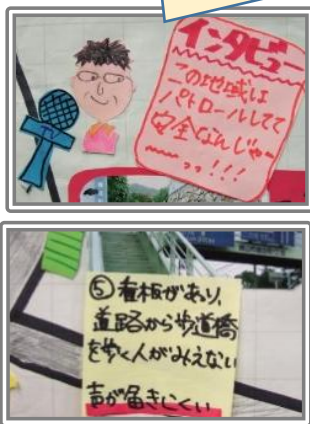 インタビュー
この地域は
パトロールしてて
安全なんじゃ
〜〜っ!!!
TV
⑤看板があり、
道路から歩道橋
を歩く人がみえない
声が届きにくい